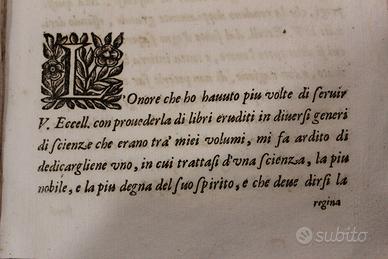 L'Onore che ho hauuto piu volte di seruir
V. Eccell. con prouederla di libri eruditi in diuersi generi
di scienze che erano tra' miei volumi, mi fa ardito di
dedicargliene vno, in cui trattasi d'vna scienza, la piu
nobile, e la piu degna del suo spirito, e che deue dirsi la
regina
subito